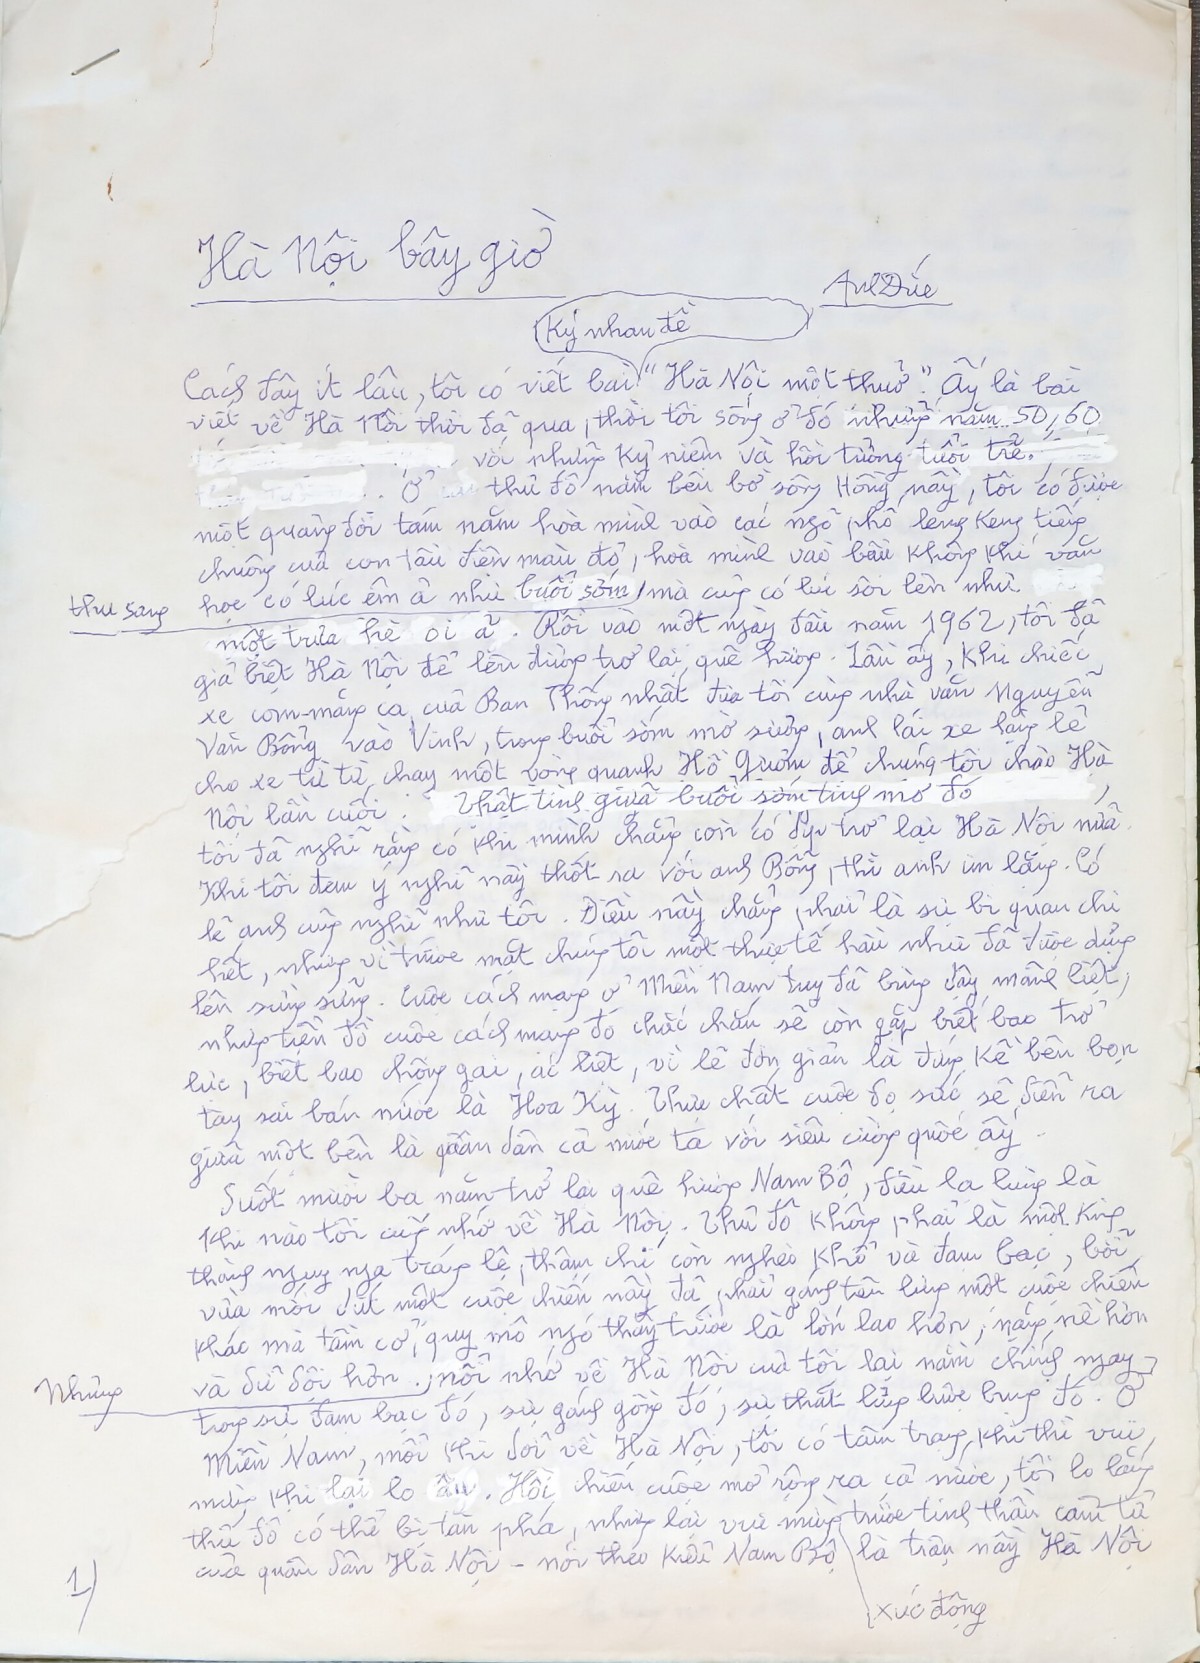 Hà Nội bây giờ
Anh Đức
Ký nhan đề
Cách đây ít lâu, tôi có viết bài "Hà Nội một thuở". Ấy là bài
viết về Hà Nội thời đã qua, thời tôi sống ở đó những năm 50, 60
với những kỷ niệm và hồi tưởng tuổi trẻ.
Ở thủ đô nằm bên bờ sông Hồng này, tôi có được
một quãng đời tám năm hoà mình vào các ngõ phố leng keng tiếng
chuông của con tàu điện màu đỏ, hoà mình vào bầu không khí văn
thu sang
học có lúc êm ả như buổi sớm, mà cũng có lúc sôi lên như
một trưa hè oi ả. Rồi vào một ngày đầu năm 1962, tôi đã
giã biệt Hà Nội để lên đường trở lại quê hương. Lần ấy, khi chiếc
xe com-măng ca của Ban Thống nhất đưa tôi cùng nhà văn Nguyễn
Văn Bổng vào Vinh, trong buổi sớm mờ sương, anh lái xe lặng lẽ
cho xe từ từ chạy một vòng quanh Hồ Gươm để chúng tôi chào Hà
Nội lần cuối. Thật tình giữa buổi sớm tinh mơ đó,
tôi đã nghĩ rằng có khi mình chẳng còn có dịp trở lại Hà Nội nữa.
Khi tôi đem ý nghĩ này thốt ra với anh Bổng, thì anh im lặng. Có
lẽ anh cũng nghĩ như tôi. Điều nầy chẳng phải là sự bi quan chi
hết, nhưng vì trước mắt chúng tôi một thực tế hầu như đã được dựng
lên sừng sững. Cuộc cách mạng ở Miền Nam tuy đã bùng dậy mãnh liệt,
nhưng tiền đồ cuộc cách mạng đó chắc chắn sẽ còn gặp biết bao trở
lực, biết bao chông gai, ác liệt, vì lẽ đơn giản là đứng kề bên bọn
tay sai bán nước là Hoa Kỳ. Thực chất cuộc đọ sức sẽ diễn ra
giữa một bên là quân dân cả nước ta với siêu cường quốc ấy.
Suốt mười ba năm trở lại quê hương Nam Bộ, điều lạ lùng là
khi nào tôi cũng nhớ về Hà Nội. Thủ đô không phải là một kinh
thành nguy nga tráng lệ, thậm chí còn nghèo khổ và đạm bạc, bởi
vừa mới dứt một cuộc chiến nầy đã phải gánh trên lưng một cuộc chiến
khác mà tầm cỡ, quy mô ngó thấy trước là lớn lao hơn, nặng nề hơn
Nhưng
và dữ dội hơn. nỗi nhớ về Hà Nội của tôi lại nằm chính ngay
trong sự đạm bạc đó, sự gánh gồng đó, sự thắt lưng buộc bụng đó. Ở
Miền Nam, mỗi khi dõi về Hà Nội, tôi có tâm trạng khi thì vui
mừng khi lại lo âu. Hồi chiến cuộc mở rộng ra cả nước, tôi lo lắng
thủ đô có thể bị tàn phá, nhưng lại vui mừng trước tinh thần cảm tử
của quân dân Hà Nội – nói theo kiểu Nam Bộ là trận nầy Hà Nội
xúc động
1)